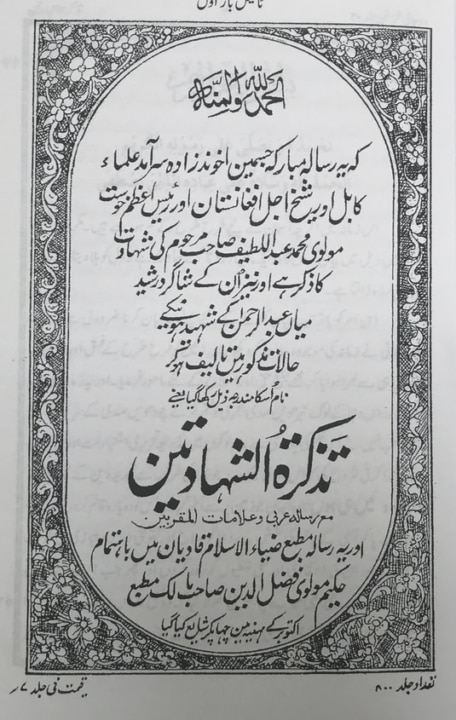 ٹائٹل بار اول
الحمد للہ والمنۃ
کہ یہ رسالہ مبارکہ جسمین اخوندزادہ سرآمد علماء
کابل اور شیخ اجل افغانستان اور رئیس اعظم خوست
مولوی محمد عبد اللطیف صاحب مرحوم کی شہادت
کا ذکر ہے اور نیز ان کے شاگرد رشید
میاں عبد الرحمن کے شہید ہونیکے
حالات مذکور ہیں تالیف ہوکر
نام اسکا مندرجہ ذیل رکھا گیا یعنے
تذکرۃ الشہادتین
معہ رسالہ عربی و علامات المقربین
اور یہ رسالہ مطبع ضیاء الاسلام قادیان میں باہتمام
حکیم مولوی فضل الدین صاحب مالک مطبع
اکتوبر کے مہینہ مین چھاپکر شایع کیا گیا
تعداد جلد ۸۰۰
قیمت فی جلد ۷؍